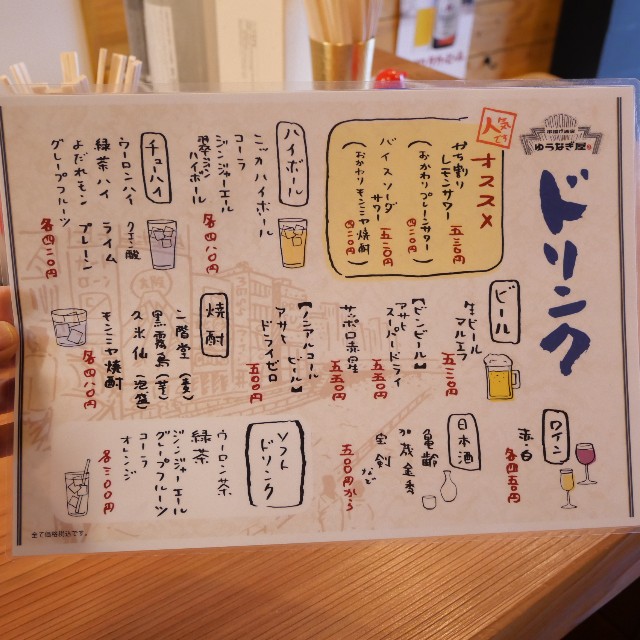 ゆうなぎ屋
ドリンク
人気です
オススメ
かち割り
レモンサワー 五三〇円
(おかわりプレーンサワー 四二〇円)
バイスソーダ
サワー 五二〇円
(おかわりモンミヤ焼酎 四二〇円)
ハイボール
ニッカハイボール
コーラ
ジンジャーエール
ハイボール
各四八〇円
チューハイ
ウーロンハイ
緑茶ハイ
よだれモン
グレープフルーツ
クエン酸
ライム
プレーン
各四二〇円
ビール
生ビール
マルエフ
五三〇円
【ビンビール】
アサヒ
スーパードライ
五五〇円
サッポロ赤星
五五〇円
【ノンアルコールビール】
アサヒ
ドライゼロ
五〇〇円
焼酎
二階堂(麦)
黒霧島(芋)
久米仙(泡盛)
モンミヤ焼酎
各四八〇円
ワイン
赤・白
各四五〇円
日本酒
亀齢
加茂金秀
宝剣
など
五〇〇円から
ソフト
ドリンク
ウーロン茶
緑茶
ジンジャーエール
グレープフルーツ
コーラ
オレンジ
各三〇〇円
全て価格税込です。